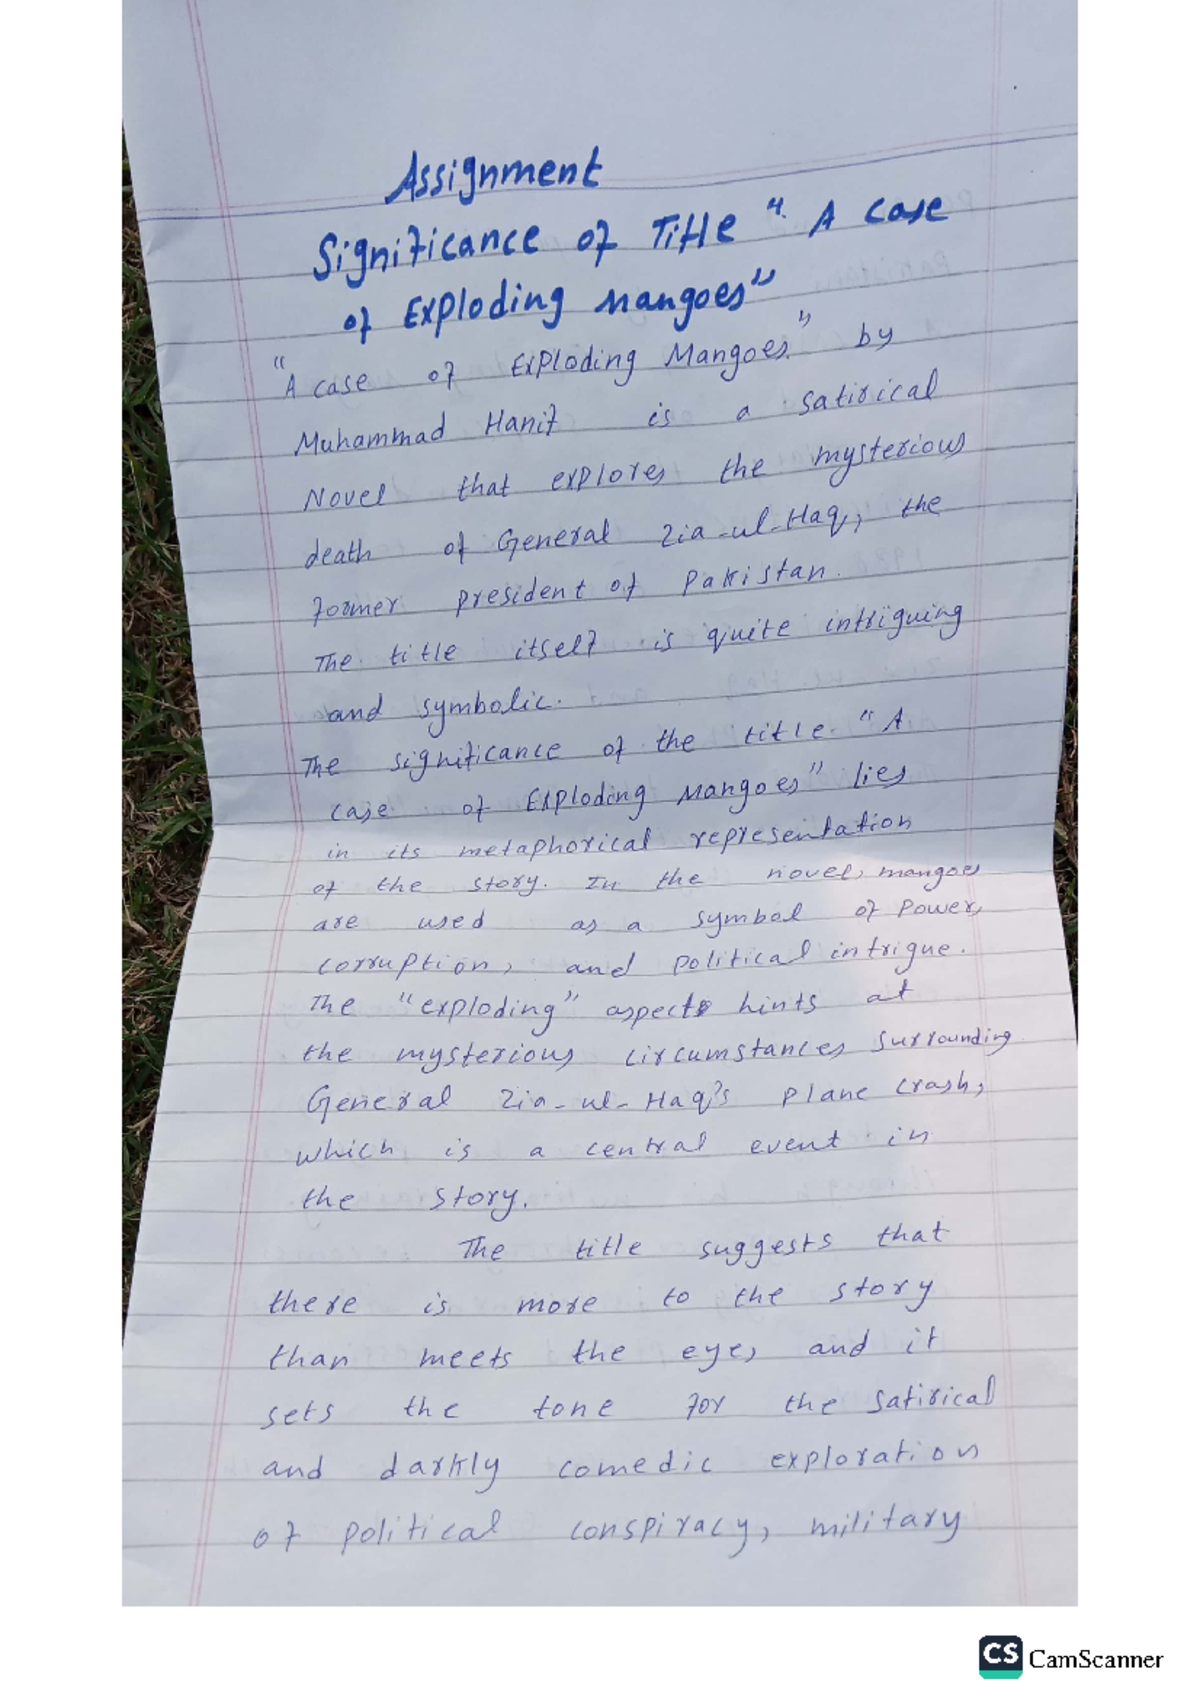 Assignment
Significance of Title " A Case
of Exploding Mangoes"
"A case of Exploding Mangoes" by
Muhammad Hanif is a satirical
Novel that explores the mysterious
death of General Zia-ul-Haq, the
former president of Pakistan.
The title itself is quite intriguing
and symbolic.
The significance of the title "A
case of Exploding Mangoes" lies
in its metaphorical representation
of the story. In the novel, mangoes
are used as a symbol of Power,
corruption, and political intrigue.
The "exploding" aspects hints at
the mysterious circumstances surrounding
General Zia-ul-Haq's plane crash,
which is a central event in
the story.
The title suggests that
there is more to the story
than meets the eye, and it
sets the tone for the satirical
and darkly comedic exploration
of political conspiracy, military
CS CamScanner